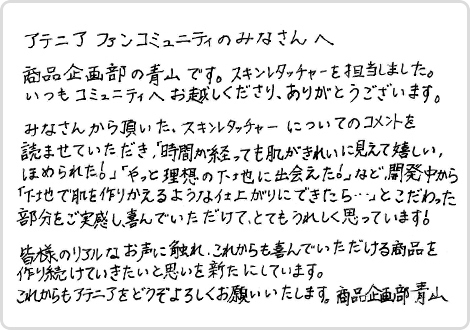 アテニア ファンコミュニティのみなさんへ
商品企画部の青山です。スキンレタッチャーを担当しました。
いつもコミュニティへお越しくださり、ありがとうございます。
みなさんから頂いた、スキンレタッチャーについてのコメントを
読ませていただき、「時間が経っても肌がきれいに見えて嬉しい，
ほめられた！」「やっと理想の下地に出会えた！」など、開発中から
「下地で肌を作りかえるような仕上がりにできたら…」とこだわった
部分をご実感し、喜んでいただけて、とてもうれしく思っています！
皆様のリアルなお声に触れ、これからも喜んでいただける商品を
作り続けていきたいと思いを新たにしています。
これからもアテニアをどうぞよろしくお願いいたします。商品企画部 青山